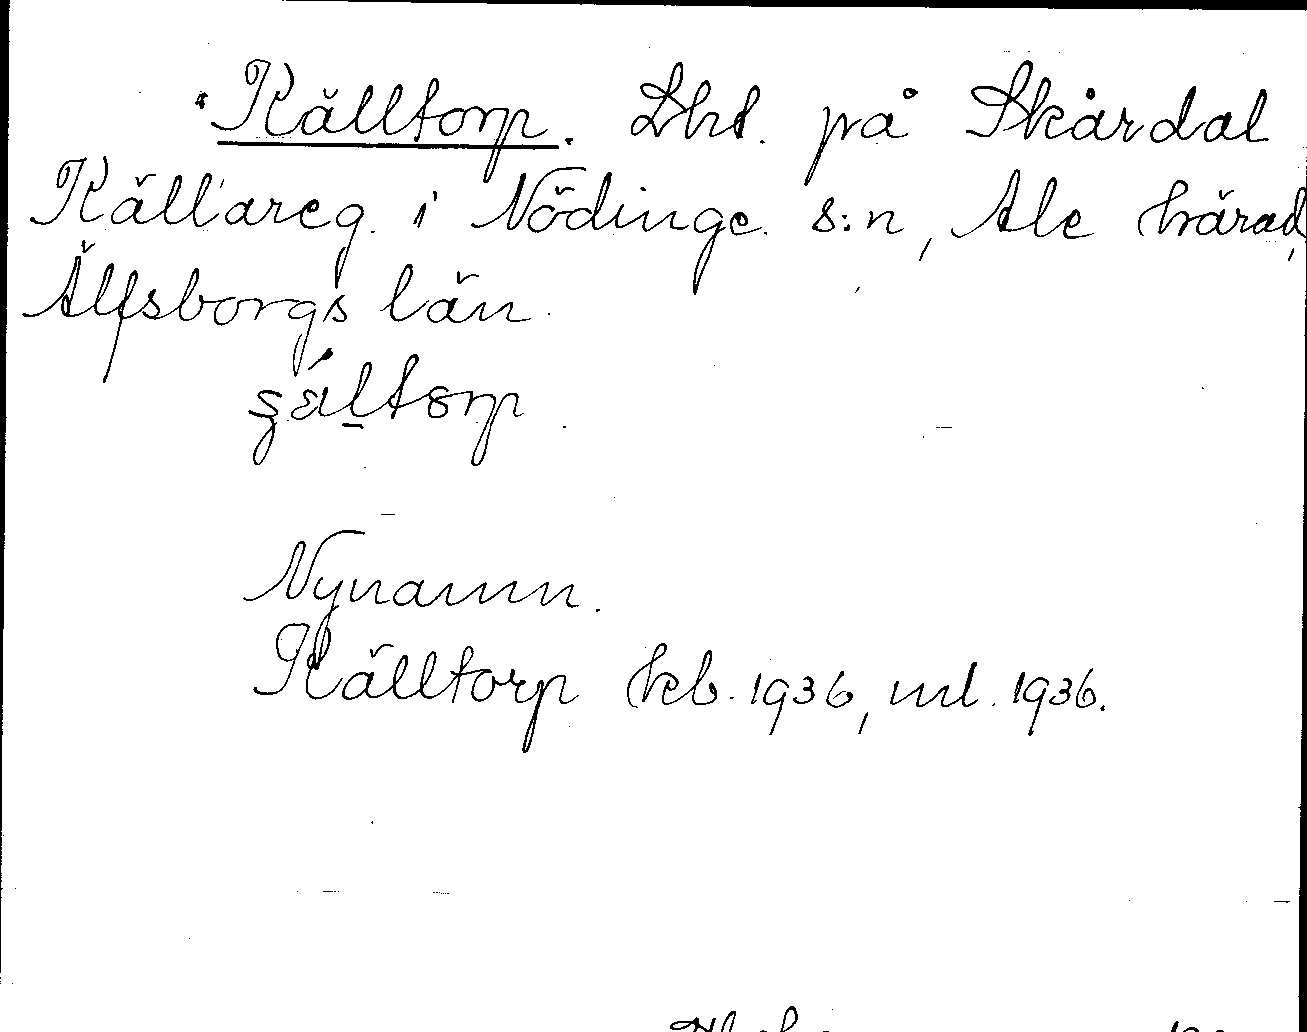 Källtorp. Lht. på Skårdal
Källareg. i Nödinge s:n, Ale härad,
Älfsborgs län.
Nynamn.
Källtorp kb. 1936, ml. 1936.